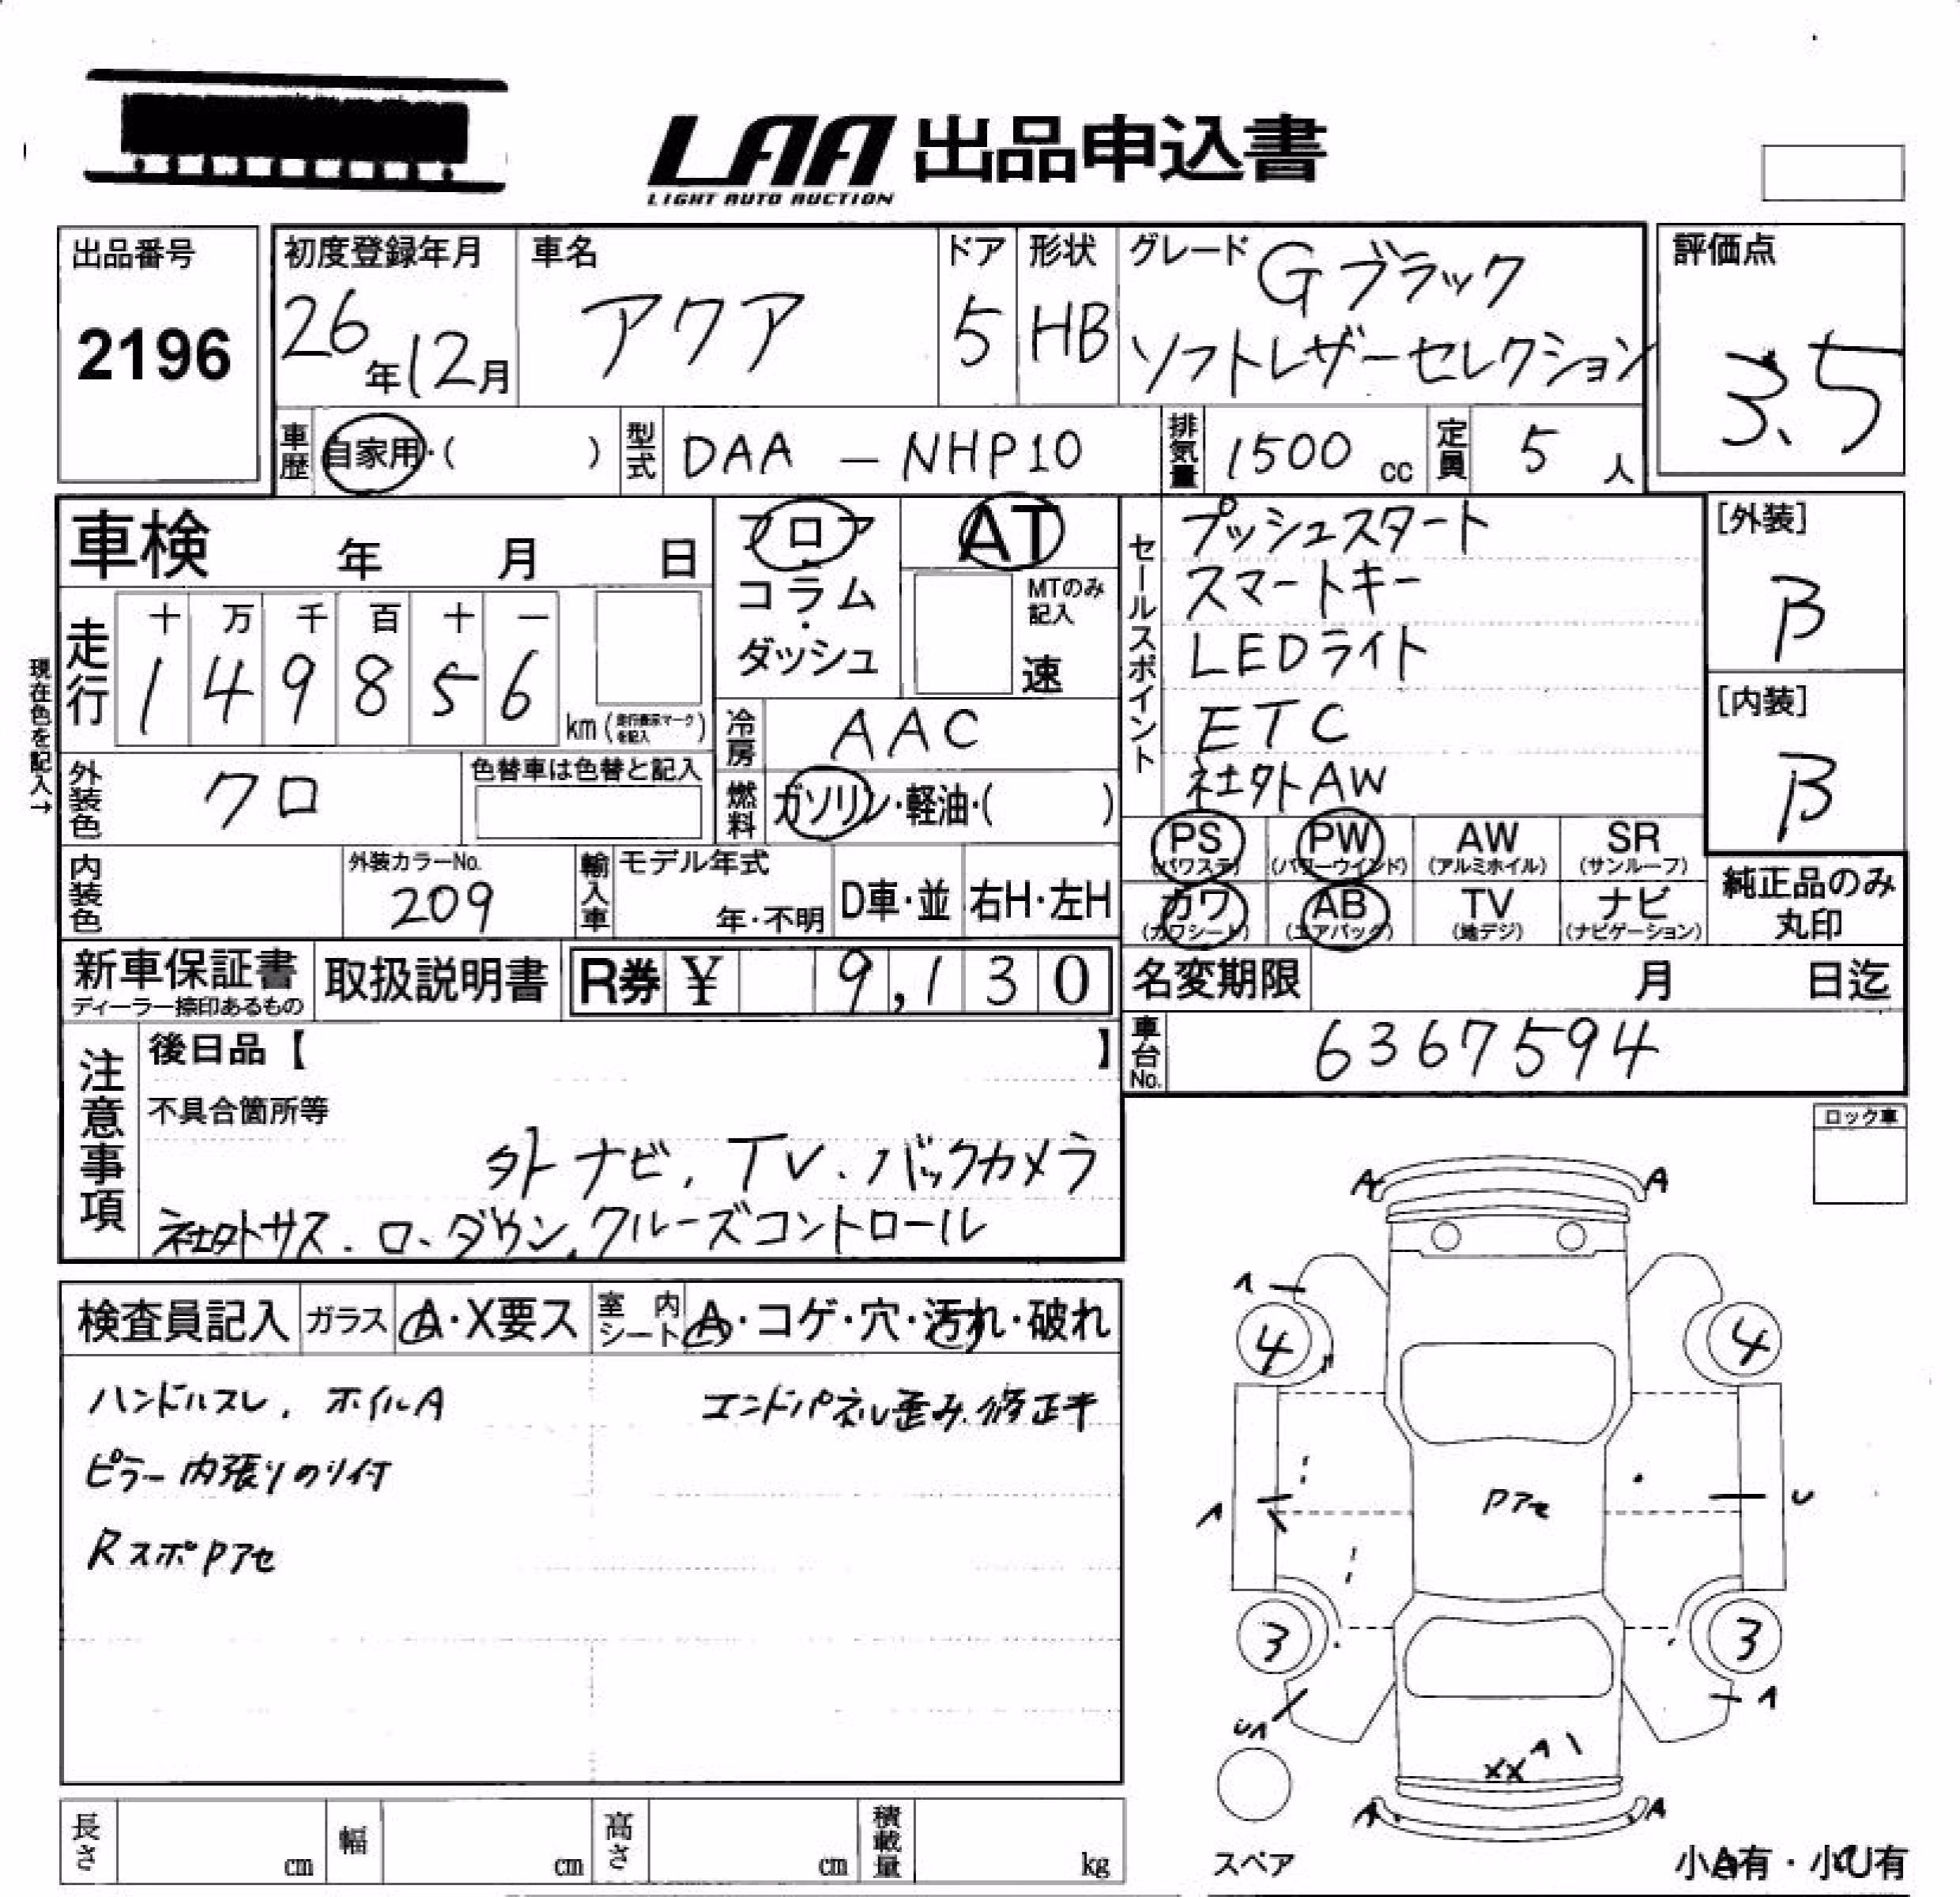 LAA 出品申込書
LIGHT AUTO AUCTION
出品番号
2196
初度登録年月
26年12月
車名
アクア
ドア
5
形状
HB
グレード
Gブラック
ソフトレザーセレクション
評価点
3.5
車歴
自家用・( )
型式
DAA - NHP10
排気量
1500 cc
定員
5 人
現在色を記入→
車検 年 月 日
走行
十 万 千 百 十 一
1 4 9 8 5 6
km(走行表示マークを記入)
フロア
コラム
・
ダッシュ
AT
MTのみ
記入
速
冷房
AAC
燃料
ガソリン・軽油・( )
外装色
クロ
色替車は色替と記入
内装色
外装カラーNo.
209
輸入車
モデル年式
年・不明
D車・並
右H・左H
セールスポイント
プッシュスタート
スマートキー
LEDライト
ETC
社外AW
[外装]
B
[内装]
B
PS
(パワステ)
PW
(パワーウインド)
AW
(アルミホイル)
SR
(サンルーフ)
カワ
(カワシート)
AB
(エアバック)
TV
(地デジ)
ナビ
(ナビゲーション)
純正品のみ
丸印
新車保証書
ディーラー捺印あるもの
取扱説明書
R券 ¥ 9,130
名変期限 月 日迄
車台No.
6367594
注意事項
後日品【 】
不具合箇所等
外ナビ、TV、バックカメラ
社外サス、ローダウン、クルーズコントロール
ロック車
検査員記入
ガラス
A・X要ス
室内
シート
A・コゲ・穴・汚れ・破れ
ハンドルスレ、ホイルA
エンドパネル歪み修正キ
ピラー内張りのり付
RスポPアセ
A A
A
4 4
Pアセ
A U
3 3
UA A
XX A
A A
スペア
小A有・小U有
長さ cm
幅 cm
高さ cm
積載量 kg